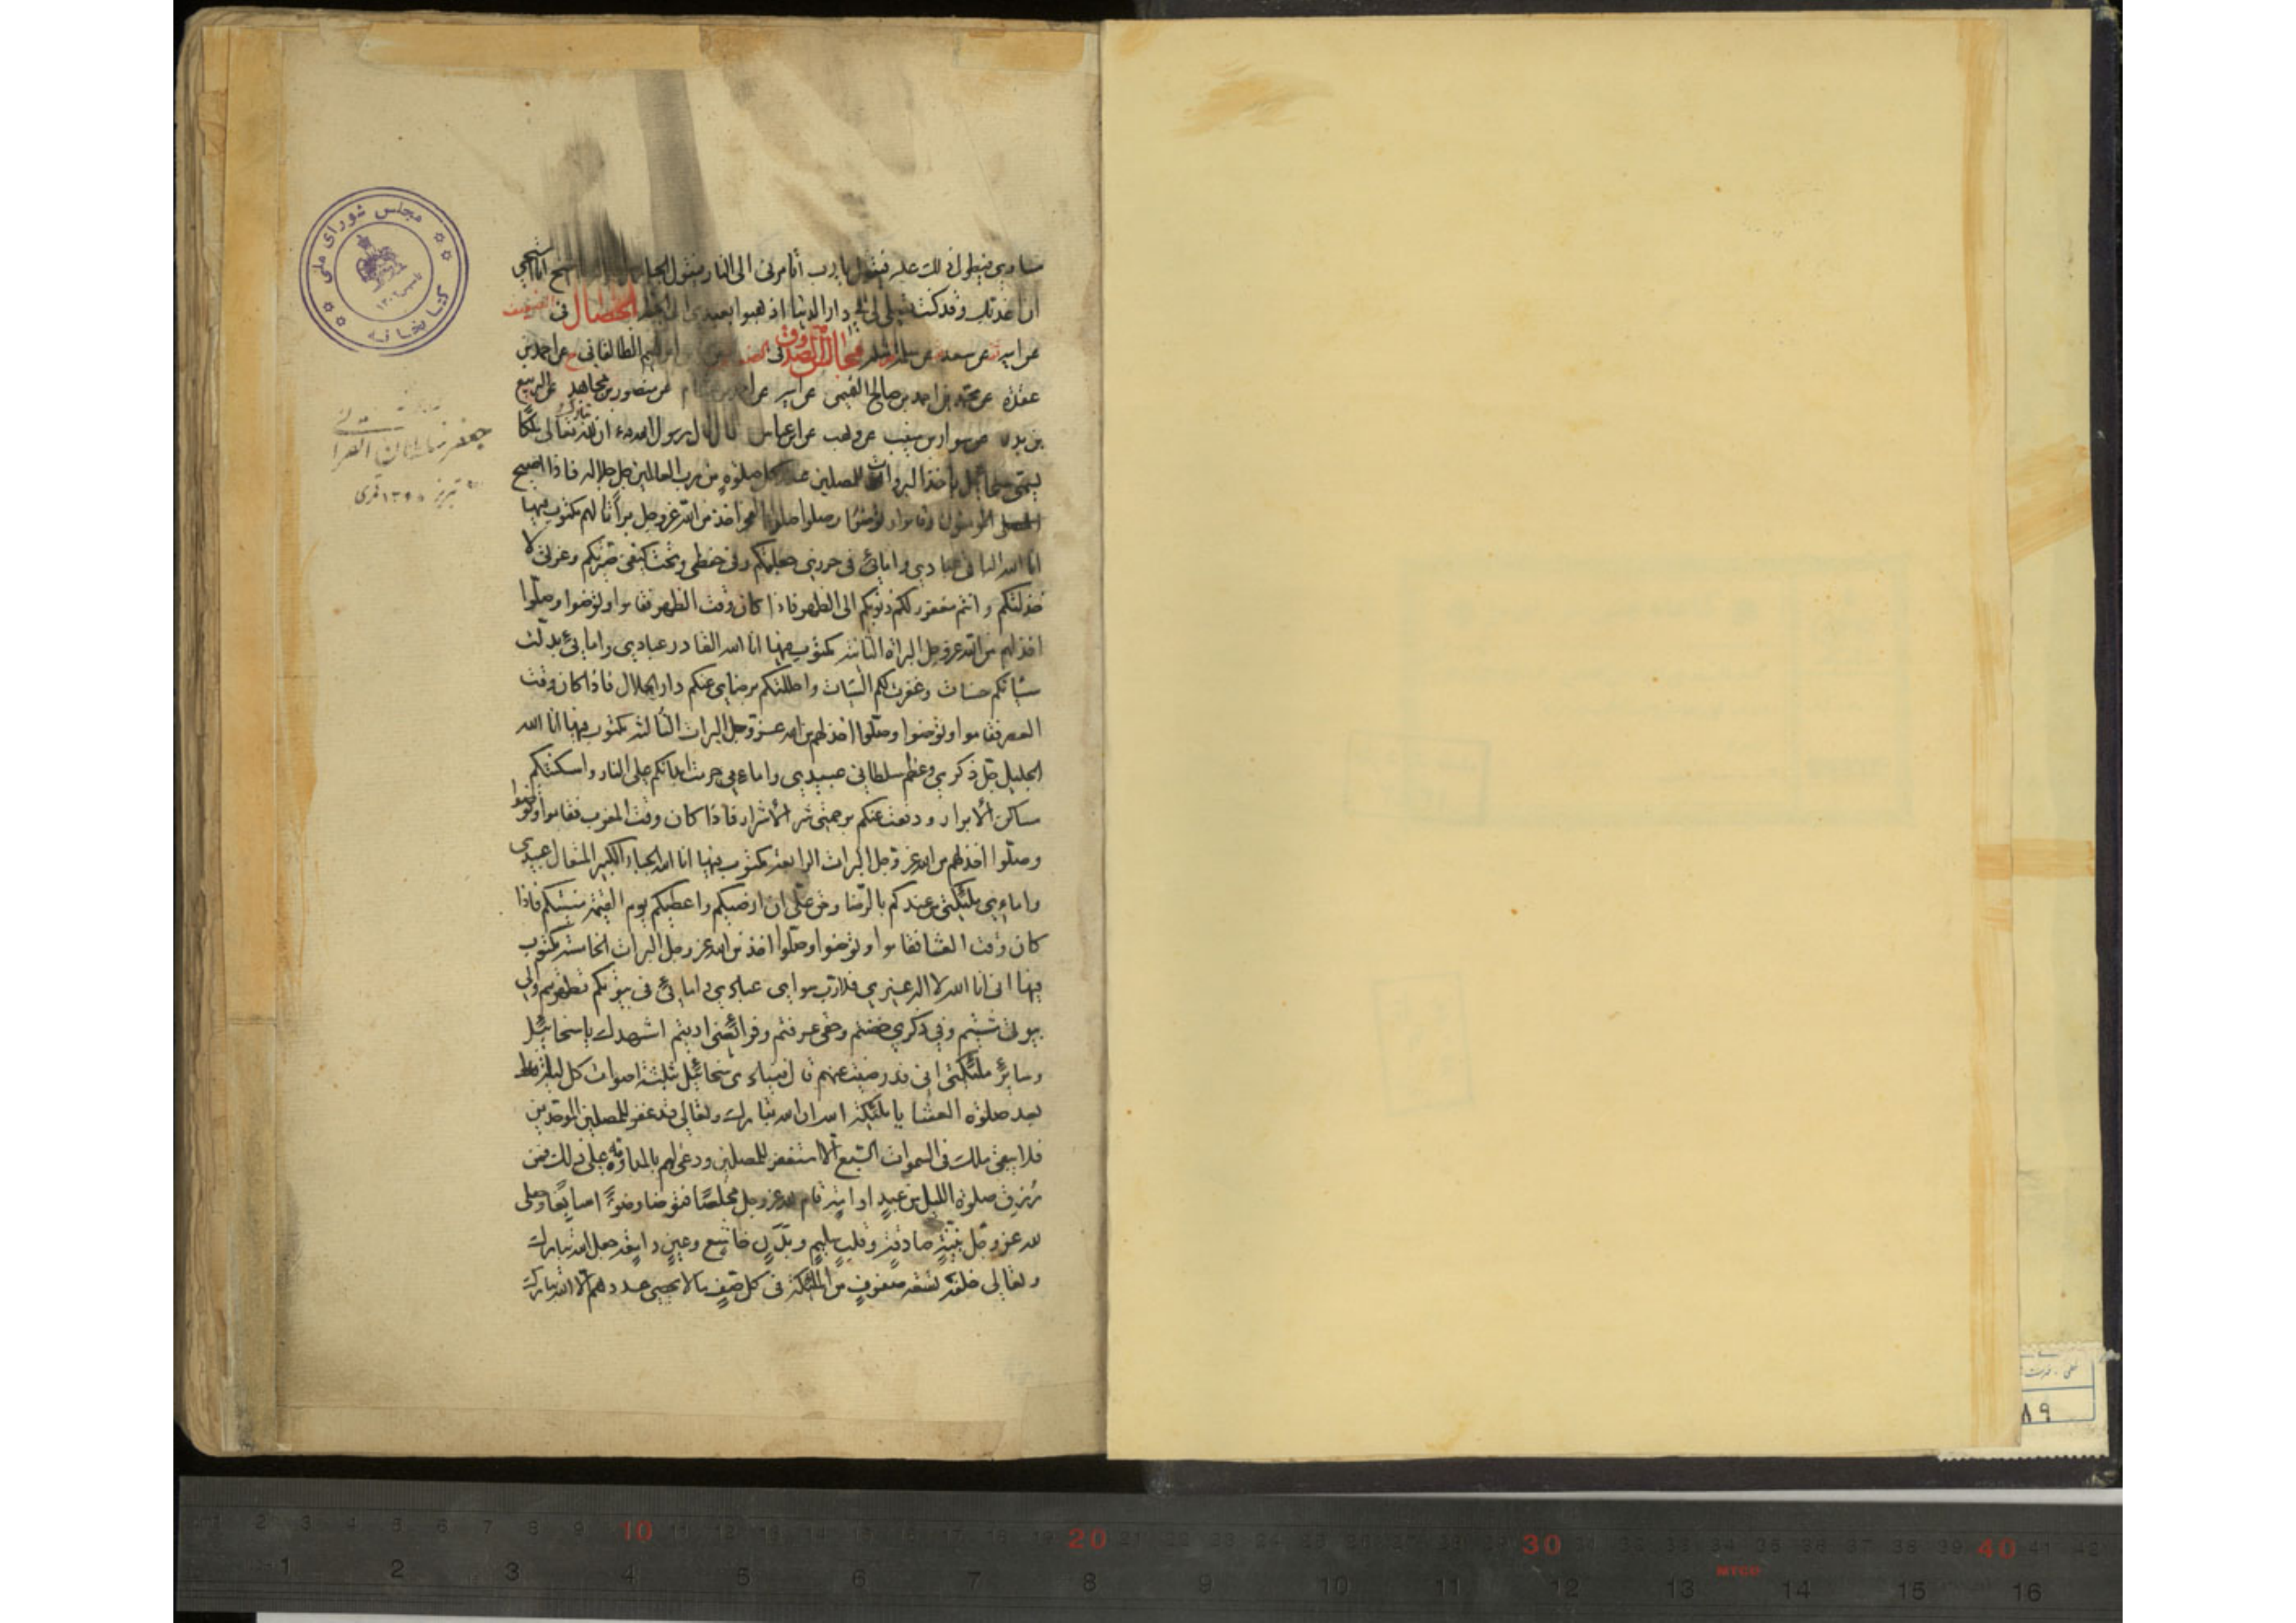 مساويه فيطول ذلك عليه فيقول يا رب أتأمرنى الى النار فيقول الجبار يا شيخ انا استحيى
ان اعذبك وقد كنت تصلى لى فى دار الدنيا اذهبوا بعبدى الى الجنة الخصال فى
عن ابيه عن سعد عن سلمة مجالس الصدوق فى الطالقانى عن احمد بن
عقدة عن محمد بن احمد بن صالح التميمى عن ابيه عن احمد بن هشام عن منصور بن مجاهد عن الربيع
بن بدر عن سوار بن منيب عن وهب عن ابن عباس قال قال رسول الله ان لله تبارك وتعالى ملكا
يسمى سخائيل يأخذ البروات للمصلين عند كل صلوة من رب العالمين جل جلاله فاذا اصبح
المؤمنون وقاموا وتوضؤا وصلوا صلوة الفجر اخذ من الله عز وجل براتا لهم مكتوب فيها
انا الله الباقى عبادى وامائى فى حرزى جعلتكم وفى حفظى وتحت كنفى صيرتكم وعزتى لا
خذلتكم وانتم مغفور لكم ذنوبكم الى الظهر فاذا كان وقت الظهر فقاموا وتوضوا وصلوا
اخذ لهم من الله عز وجل البراة الثانية مكتوب فيها انا الله القادر عبادى وامائى بدلت
سيئاتكم حسنات وغفرت لكم السيئات واحللتكم برضاى عنكم دار الجلال فاذا كان وقت
العصر فقاموا وتوضوا وصلوا اخذ لهم من الله عز وجل البرات الثالثة مكتوب فيها انا الله
الجليل جل ذكرى وعظم سلطانى عبيدى واماءى حرمت ابدانكم على النار واسكنتكم
مساكن الأبرار ودفعت عنكم برحمتى شر الأشرار فاذا كان وقت المغرب فقاموا وتوضوا
وصلوا اخذ لهم من الله عز وجل البرات الرابعة مكتوب فيها انا الله الجبار الكبير المتعال عبيدى
واماءى ملئكتى من عندكم بالرضا وحق على ان ارضيكم واعطيكم يوم القيمة منيتكم فاذا
كان وقت العشا فقاموا وتوضوا وصلوا اخذ من الله عز وجل البرات الخامسة مكتوب
فيها انى انا الله لا اله غيرى ولا رب سواى عبادى وامائى فى بيوتكم تطهرتم والى
بيوتى مشيتم وفى ذكرى خضتم وحقى عرفتم وفرائضى اديتم اشهدك يا سخائيل
وسائر ملئكتى انى قد رضيت عنهم قال فينادى سخائيل بثلثة اصوات كل ليلة
بعد صلوة العشا يا ملئكة الله ان الله تبارك وتعالى قد غفر للمصلين الموحدين
فلا يبقى ملك فى السموات السبع الا استغفر للمصلين ودعى لهم بالمداومة على ذلك فمن
رزق صلوة الليل من عبد او امة قام لله عز وجل مخلصا فتوضا وضوءا سابغا وصلى
لله عز وجل بنية صادقة وقلب سليم وبدن خاشع وعين دامعة جعل الله تبارك
وتعالى خلفه تسعة صفوف من الملئكة فى كل صف ما لا يحصى عددهم الا الله تبارك
كتابخانه مجلس شوراى ملى
جعفر سلطان القرائى
تبريز ١٣٩٠ قمرى
٨٩